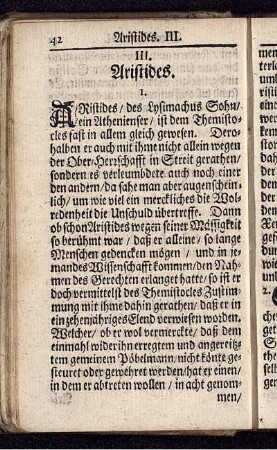 42 Aristides. III.
III.
Aristides.
1.
ARistides/ des Lysimachus Sohn/
ein Athenienser/ ist dem Themisto-
cles fast in allem gleich gewesen. Dero-
halben er auch mit ihme nicht allein wegen
der Ober-Herschafft in Streit gerathen/
sondern es verleumbdete auch noch einer
den andern/ da sahe man aber augenschein-
lich/ um wie viel ein merckliches die Wol-
redenheit die Unschuld übertreffe. Dann
ob schon Aristides wegen seiner Mässigkeit
so berühmt war/ daß er alleine/ so lange
Menschen gedencken mögen/ und in je-
mandes Wissenschafft kommen/ den Nah-
men des Gerechten erlanget hatte/ so ist er
doch vermittelst des Themistocles Zustim-
mung mit ihme dahin gerathen/ daß er in
ein zehenjähriges Elend verwiesen worden.
Welcher/ ob er wol vermerckte/ daß dem
einmahl wider ihn erregtem und angereitz-
tem gemeinem Pöbelmann/ nicht könte ge-
steuret oder gewehret werden/ hat er einen/
in dem er abtreten wollen/ in acht genom-
men/